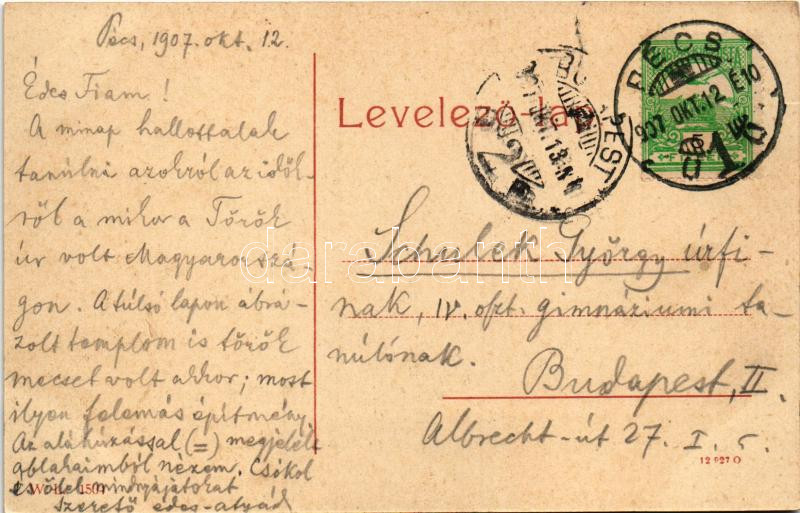 Pécs, 1907. okt. 12.
Édes Fiam!
A minap hallottalak
tanúlni azokról az idők-
ről a mikor a Török
úr volt Magyarorszá-
gon. A túlsó lapon ábrá-
zolt templom is török
mecset volt akkor; most
ilyen felemás építmény
Az aláhúzással (=) megjelölt
ablakaimból nézem. Csókol
és ölel mindnyájatokat
szerető édes-atyád
W. L. 1507
Levelező-lap
PÉCS 1
907 OKT. 12 É10
BUDAPEST
darabanth
Schulek György úrfi-
nak, IV. oszt. gimnáziumi ta-
núlónak.
Budapest, II.
Albrecht-út 27. I. 5.
12 927 O